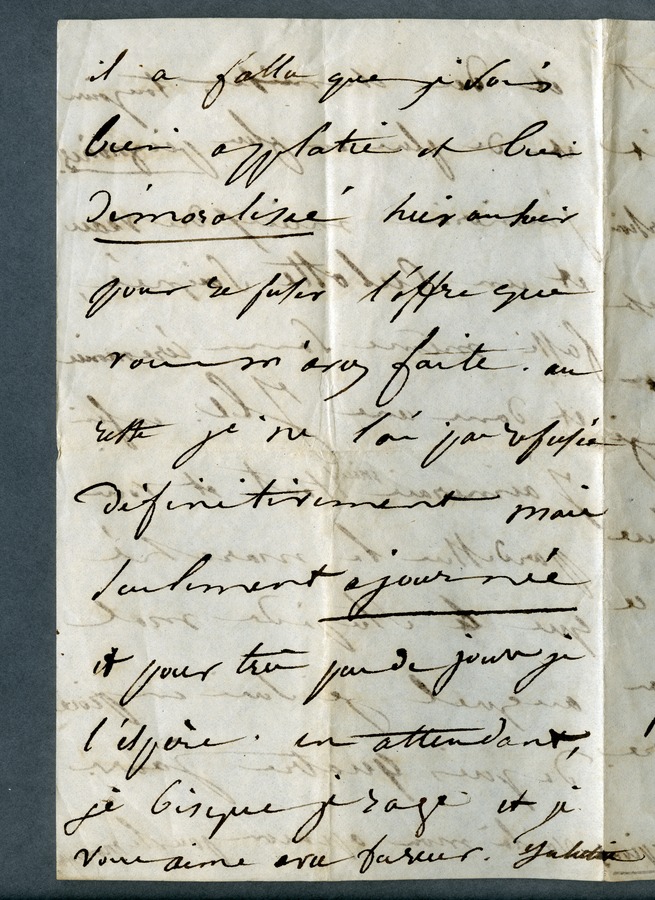 il a fallu que je sois
bien applatie et bien
démoralisée hier au soir
pour refuser l'offre que
vous m'avez faite. au
reste je ne l'ai pas refusée
définitivement mais
seulement ajournée
et pour très peu de jours je
l'espère. en attendant,
je bisque je rage et je
vous aime avec fureur. Juliette